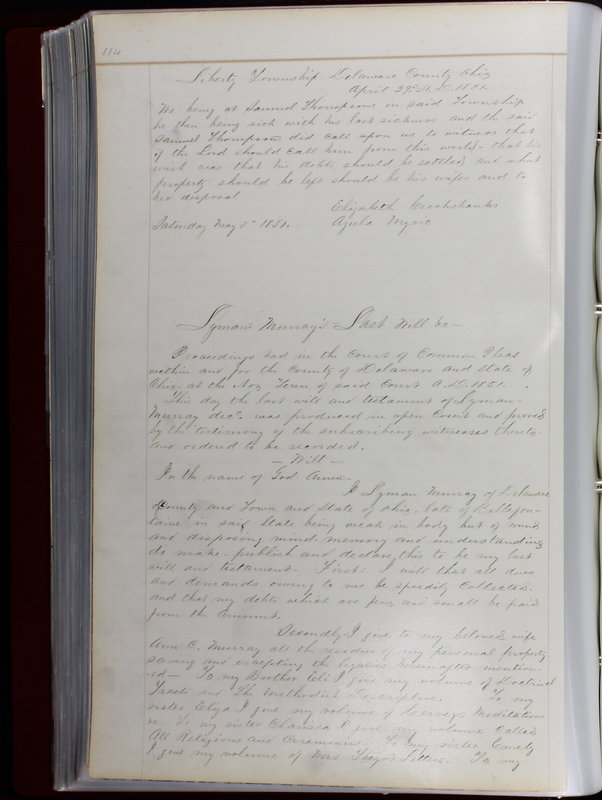 114
Liberty Township Delaware County Ohio
April 29th A.D. 1851.
We being at Samuel Thompsons in said Township
he then being sick with his last sickness and the said
Samuel Thompson did call upon us to witness that
if the Lord should call him from this world - that his
wish was that his debts should be settled and what
property should be left should be his wifes and to
her disposal
Elizabeth Crooksbanks
Saturday May 3d 1851.
Lyman Murray's Last Will &c -
Proceedings had in the Court of Common Pleas
within and for the County of Delaware and State of
Ohio at the Nov Term of said Court A.D. 1851.
This day the last will and testament of Lyman
Murray decd. was produced in open Court and proved
by the testimony of the subscribing witnesses thereto
and ordered to be recorded.
- Will -
In the name of God Amen -
I Lyman Murray of Delaware
County and Town and State of Ohio - late of Bellefon-
taine in said State being weak in body but of
and disposing mind memory and understanding
do make - publish and declare, this to be my last
will and testament - First: I will that all dues
and demands owing to me be speedily collected.
and that my debts which are few and small be paid
from the amount.
Secondly - I give to my beloved wife
Ann C. Murray all the residue of my personal property
saving and excepting the legacies herein after mention
ed - To my Brother Eli I give my volume of Doctrinal
Tracts and The Methodist To my
sister Eliza I give my volume of Herveys Meditations
&c. To my sister Clarissa I give my volume Called
All Religions and Ceremonies. To my sister Emily
I give my volume of Mrs Letters. To my